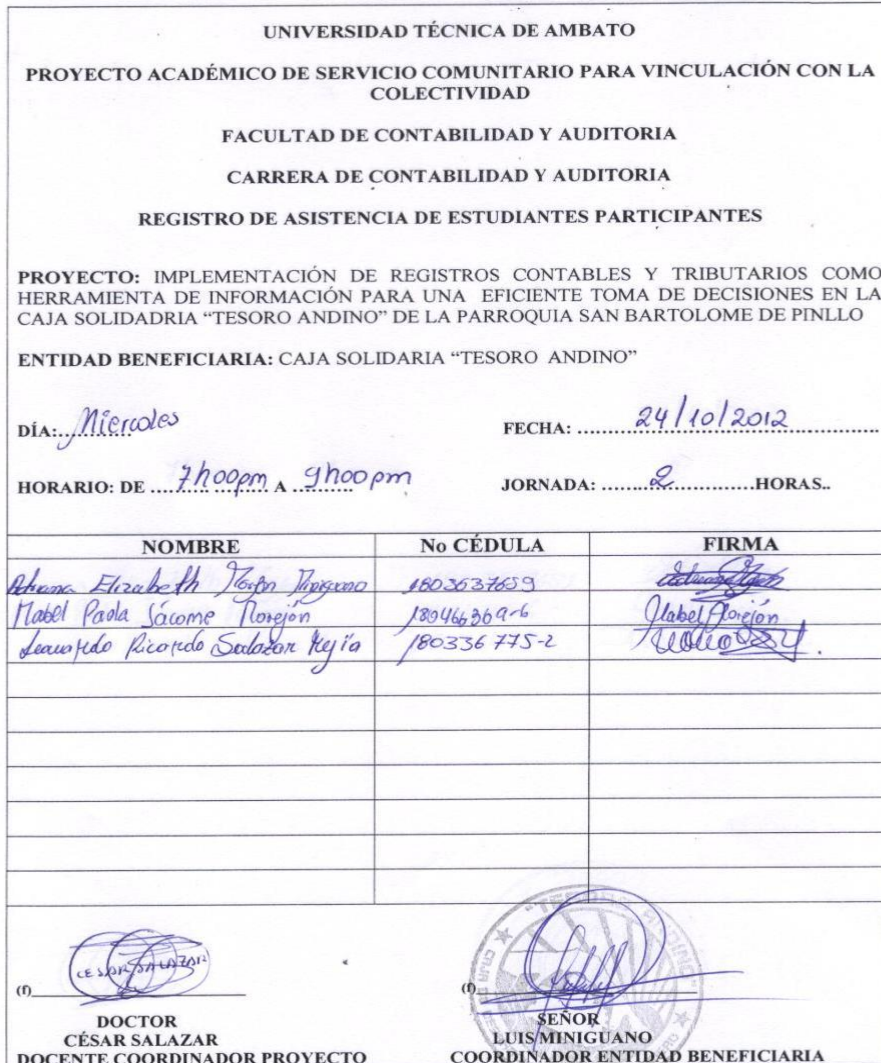 UNIVERSIDAD TÉCNICA DE AMBATO
PROYECTO ACADÉMICO DE SERVICIO COMUNITARIO PARA VINCULACIÓN CON LA
COLECTIVIDAD
FACULTAD DE CONTABILIDAD Y AUDITORIA
CARRERA DE CONTABILIDAD Y AUDITORIA
REGISTRO DE ASISTENCIA DE ESTUDIANTES PARTICIPANTES
PROYECTO: IMPLEMENTACIÓN DE REGISTROS CONTABLES Y TRIBUTARIOS COMO
HERRAMIENTA DE INFORMACIÓN PARA UNA EFICIENTE TOMA DE DECISIONES EN LA
CAJA SOLIDADRIA “TESORO ANDINO” DE LA PARROQUIA SAN BARTOLOME DE PINLLO
ENTIDAD BENEFICIARIA: CAJA SOLIDARIA “TESORO ANDINO”
DÍA: Miercoles FECHA: 24/10/2012
HORARIO: DE 7h00pm A 9h00pm JORNADA: 2 HORAS..
NOMBRE No CÉDULA FIRMA
Elizabeth 1803637659
Mabel Paola Jácome Morejón 180466369-6 Mabel Morejón
Leonardo Ricardo Salazar Mejía 180336775-2
CESAR SALAZAR
(f) (f)
DOCTOR SEÑOR
CÉSAR SALAZAR LUIS MINIGUANO
DOCENTE COORDINADOR PROYECTO COORDINADOR ENTIDAD BENEFICIARIA